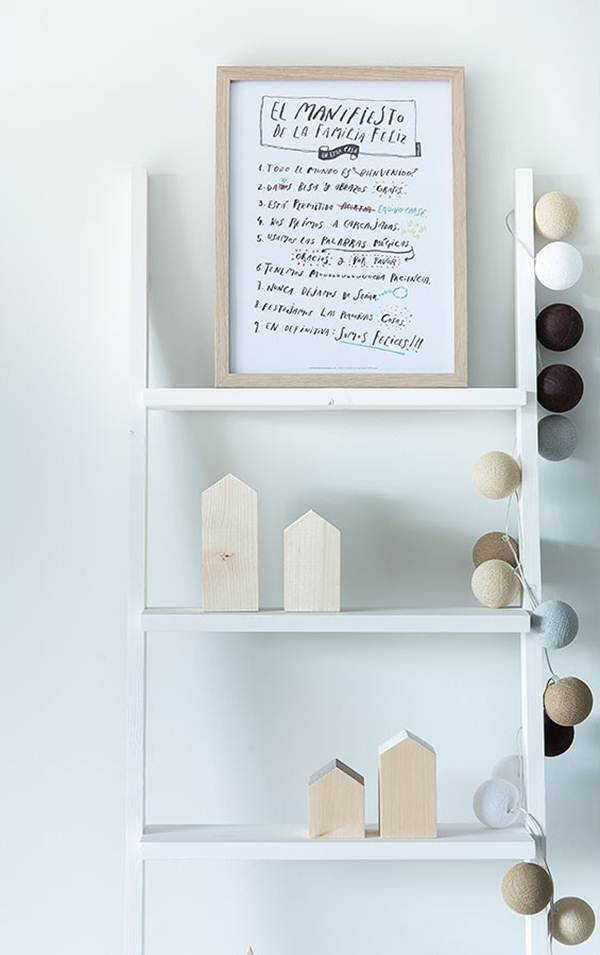 EL MANIFIESTO
DE LA FAMILIA FELIZ
DE ESTA CASA
1. TODO EL MUNDO ES ¡BIENVENIDO!
2. DAMOS BESOS Y ABRAZOS GRATIS.
3. ESTÁ PERMITIDO EQUIVOCARSE.
4. NOS REÍMOS A CARCAJADAS.
5. USAMOS LAS PALABRAS MÁGICAS
GRACIOS Y POR FAVOR
6. TENEMOS MUUUUUUUUCHA PACIENCIA.
7. NUNCA DEJAMOS DE SOÑAR
8. FESTEJAMOS LAS PEQUEÑAS COSAS.
9. EN DEFINITIVA: ¡SOMOS FELICES!!!